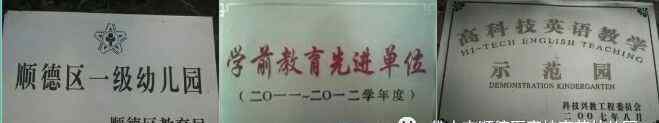 顺德区一级幼儿园
学前教育先进单位
（二〇一一~二〇一二学年度）
高科技英语教学
HI-TECH ENGLISH TEACHING
示范园
DEMONSTRATION KINDERGARTEN
科技兴教工程委员会
二〇〇七年八月